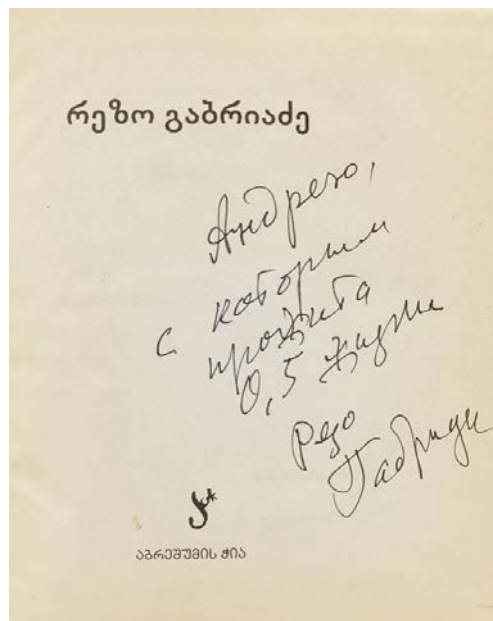 რეზო გაბრიაძე
Андрею,
с которым
прожита
0,5 жизни
Резо
Габриадзе
აბრეშუმის ჭია